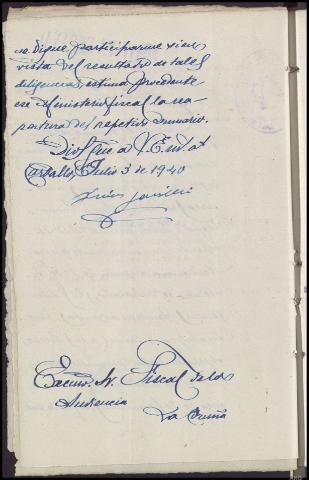 se digne participarme si en
vista del resultado de tales
diligencias, estima procedente
ese Ministerio fiscal la rea-
pertura del repetido sumario.
Dios gue a V.E. m. at
Carballo, Julio 3 de 1940
Excmo. Sr. Fiscal de la
Audiencia
La Coruña